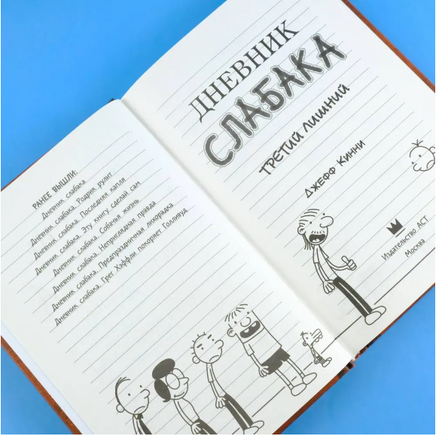 РАНЕЕ ВЫШЛИ:
Дневник слабака
Дневник слабака. Родрик рулит
Дневник слабака. Последняя капля
Дневник слабака. Эту книгу сделай сам
Дневник слабака. Собачья жизнь
Дневник слабака. Неприглядная правда
Дневник слабака. Предпраздничная лихорадка
Дневник слабака. Грег Хэффли покоряет Голливуд
ДНЕВНИК
СЛАБАКА
ТРЕТИЙ ЛИШНИЙ
ДЖЕФФ КИННИ
Издательство АСТ
Москва